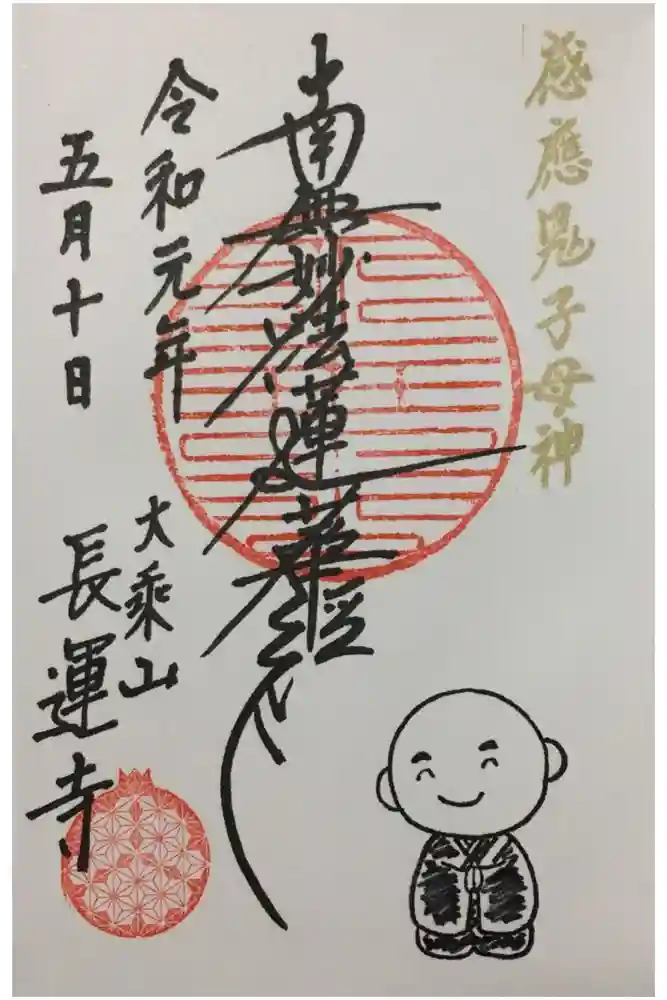 感應鬼子母神
南無妙法蓮華経
令和元年
五月十日
大乘山
長運寺